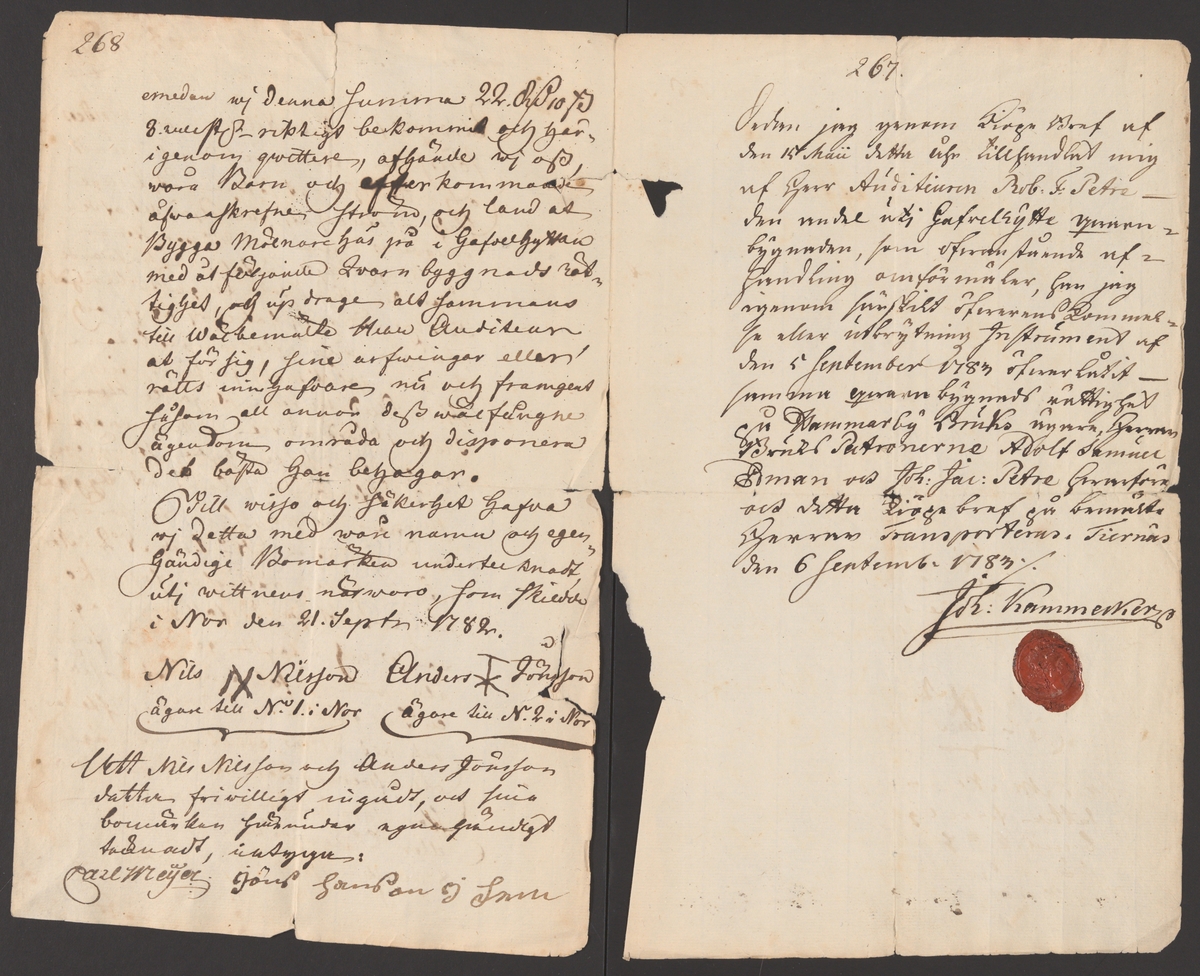 268
emedan wj denna Summa 22. Rd 10 s
8. rundst. riktigt bekommit och här-
igenom qwittere, afhände wj oß,
wåra Barn och efterkommande
åfwanskrefne ström, och land at
Bygga Mölnare hus på i Gafvelhyttan
med åtföljande Qvarn byggnads rät-
tighet, och updrage alt sammans
till Wälbemälte Herr Auditeur
at för sig, sine arfwingar eller
rätts innehafvare nu och framgent
såsom all annan deß wälfångne
ägendom områda och disponera
det bästa han behagar.
Till wisso och säkerhet hafva
wj detta med wåre namn och egen-
händige Bomärken undertecknadt,
utj wittnens närwaro, som skiedde
i Nor den 21. Septr 1782.
Nils Nilsson Anders Jönsson
ägare till No. 1. i Nor ägare till N. 2 i Nor
Att Nils Nilsson och Anders Jönsson
detta friwilligt ingådt, och sina
bomärken härunder egenhändigt
tecknadt, intyga:
Carl Meÿer. Jöns Hanson j
267.
Sedan jag genom Kiöpe Bref af
den 15 Maii detta åhr tillhandlat mig
af Herr Auditeuren Rob: F: Petre —
den andel utj Gafvelhytte qwarn-
bygnaden, som ofvanstående af-
handling omförmäler, har jag
igenom särskilt öfverens kommel-
se eller utbrytning Instrument af
den 5 September 1783 öfverlåtit —
samma qwarnbygnads rättighet
på Hammarby Bruks ägare, Herrar
Bruks Patronerne Adolf Samuel
Edman och Joh: Jac: Petre hvarföre
och detta Kiöpe bref på bemälte
Herrar Transporteras. Tiernäs
den 6 Septemb. 1783./.
Joh: Kammecker